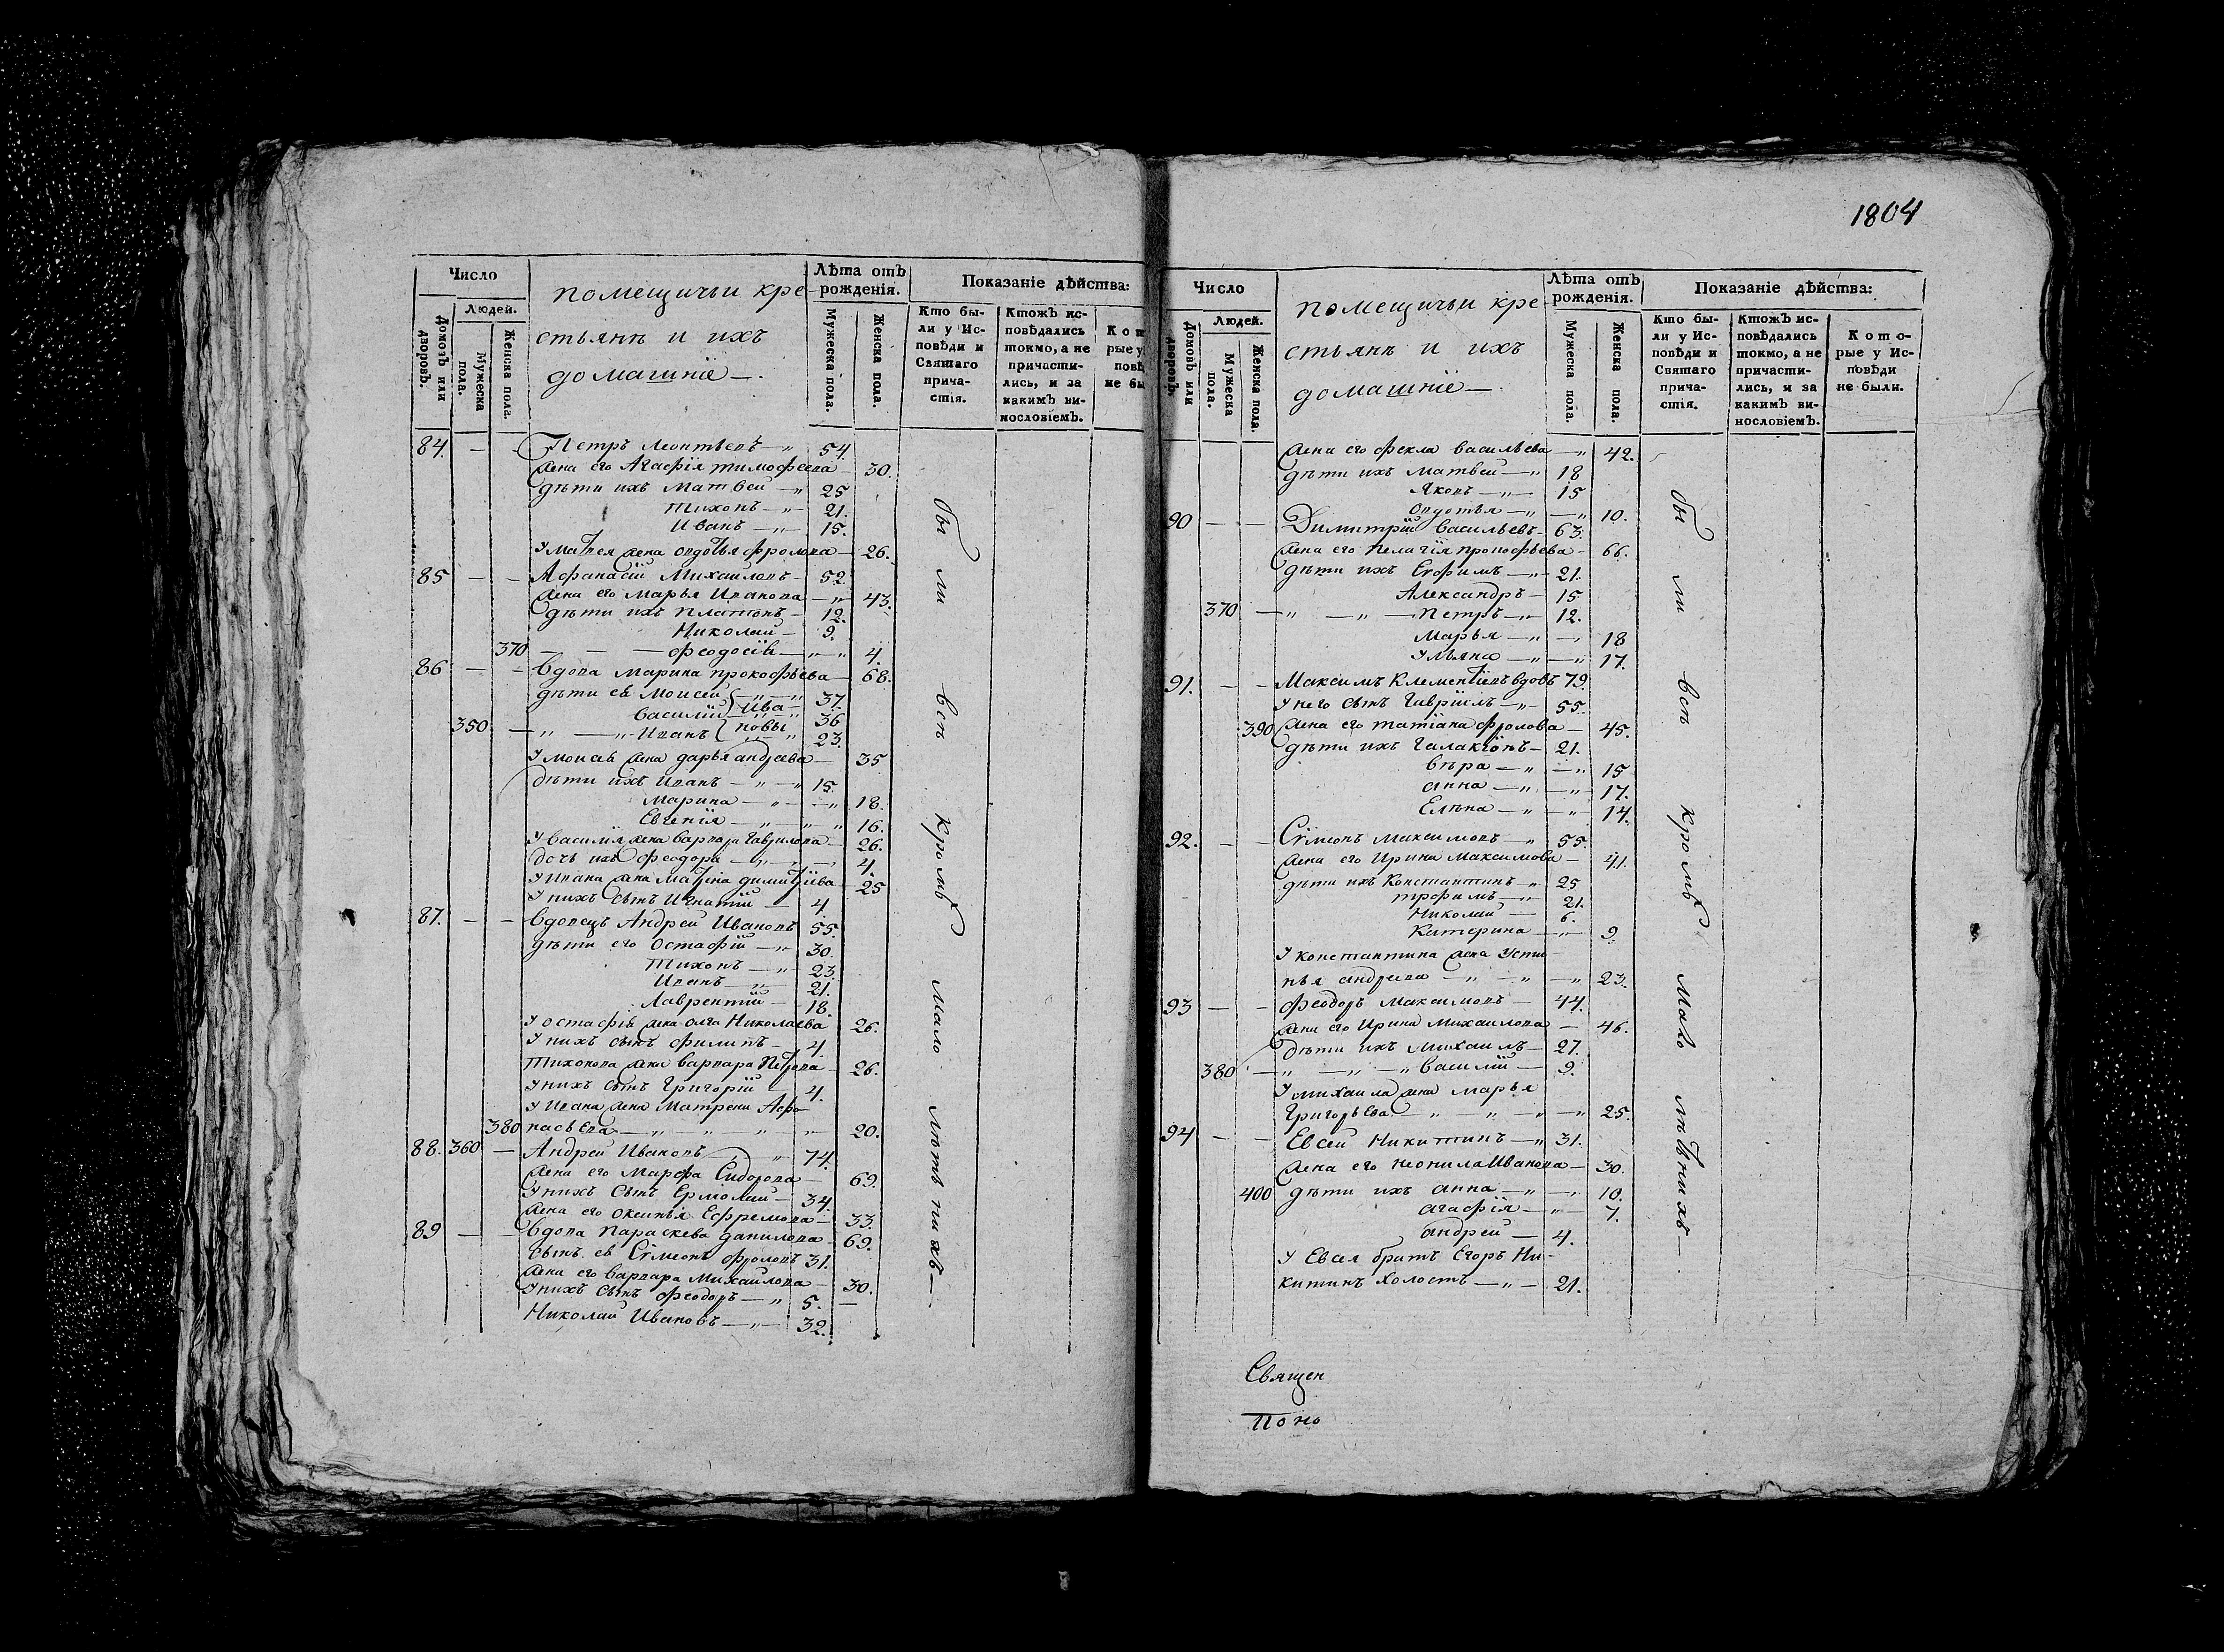 1804
Число
помещичьи кре
Лѣта отъ рожденія.
Показаніе дѣйства:
Людей.
Домовъ или дворовъ.
Мужеска пола.
Женска пола.
стьянѣ и ихъ
домашніе —.
Мужеска пола.
Женска пола.
Кто бы-
ли у Ис-
повѣди и
Святаго
прича-
стія.
Ктожъ ис-
повѣдались
токмо, а не
причасти-
лись, и за
какимъ ви-
нословіемъ.
Кот
рые у
повѣ
не бы
84 — — Петръ Леонтьевъ — 54
жена его Агафія тимофеева — 30.
дѣти ихъ Матвей — 25
Тихонъ — 21.
Иванъ — 15.
У Матвея жена овдотья фролова — 26.
85 — — Афанасій Михаиловъ — 52.
жена его Марья Иванова — 43.
дѣти ихъ Платонъ — 12.
Николай — 9.
370 — — Феодосія — 4.
86 — — Вдова Марина прокофьева — 68.
дѣти ея Моисей — 37.
Василій Ива — 36
350 — Иванъ новы — 23.
У Моисея жена дарья андреева — 35
дѣти ихъ Иванъ — 15.
Марина — 18.
Евгенія — 16.
У Василія жена варвара Гаврилова — 26.
дочь ихъ феодора — 4.
У Ивана жена Матрена димитріева — 25
У нихъ сынъ Игнатій — 4.
87. — — Вдовецъ Андрей Ивановъ 55.
дѣти его Остафій — 30.
Тихонъ — 23.
Иванъ — 21.
Лаврентій — 18.
У остафія жена олга Николаева 26.
У нихъ сынъ филипъ — 4.
Тихонова жена варвара Петрова — 26.
У нихъ сынъ Григорій — 4.
У Ивана жена Матрена Афо
380 насьева — 20.
88. 360 — Андрей Ивановъ — 74.
жена его Марфа Сидорова — 69.
У нихъ сынъ Ермолай — 34.
жена его оксинья Ефремова — 33.
89 — — Вдова Параскева данилова — 69.
сынъ ея Сѵмеонъ фроловъ 31.
жена его варвара Михаилова — 30.
У нихъ сынъ феодоръ — 5. —
Николай Ивановъ — 32.
бы ли всѣ кромѣ мало лѣтнихъ —.
Число
помещичьи кре
Лѣта отъ рожденія.
Показаніе дѣйства:
Людей.
Домовъ или дворовъ.
Мужеска пола.
Женска пола.
стьянѣ и ихъ
домашніе —.
Мужеска пола.
Женска пола.
Кто бы-
ли у Ис-
повѣди и
Святаго
прича-
стія.
Ктожъ ис-
повѣдались
токмо, а не
причасти-
лись, и за
какимъ ви-
нословіемъ.
Кото-
рые у Ис-
повѣди
не были.
жена его фекла васильева — 42.
дѣти ихъ Матвей — 18
Яковъ — 15
Овдотья — 10.
90 — — Димитрій Васильевъ — 63.
жена его Пелагія прокофьева — 66.
дѣти ихъ Ефимъ — 21.
Александръ — 15
370 — Петръ — 12.
Марья — 18
Ульяна — 17.
91. — — Максимъ Клементіевъ вдовъ 79.
У него сынъ Гавріилъ — 55.
390 жена его татіана фролова — 45.
дѣти ихъ Галактіонъ — 21.
Вѣра — 15
анна — 17.
Елѣна — 14.
92. — — Сѵмеонъ Максимовъ — 55.
жена его Ирина Максимова — 41.
дѣти ихъ Константинъ — 25
трофимъ — 21.
Николай — 6.
Катерина — 9.
У константина жена Усти
нья андреева — 23.
93 — — феодоръ Максимовъ — 44.
жена его Ирина Михаилова — 46.
дѣти ихъ Михаилъ — 27.
380 — Василій — 9.
У михаила жена марья
Григорьева — 25.
94 — — Евсей Никитинъ — 31.
жена его неонила Иванова — 30.
400 дѣти ихъ анна — 10.
агафія — 7.
андрей — 4.
У Евсея братъ Егоръ Ни-
китинъ холостъ — 21.
бы ли всѣ кромѣ мало лѣтнихъ —
Священ
Поно